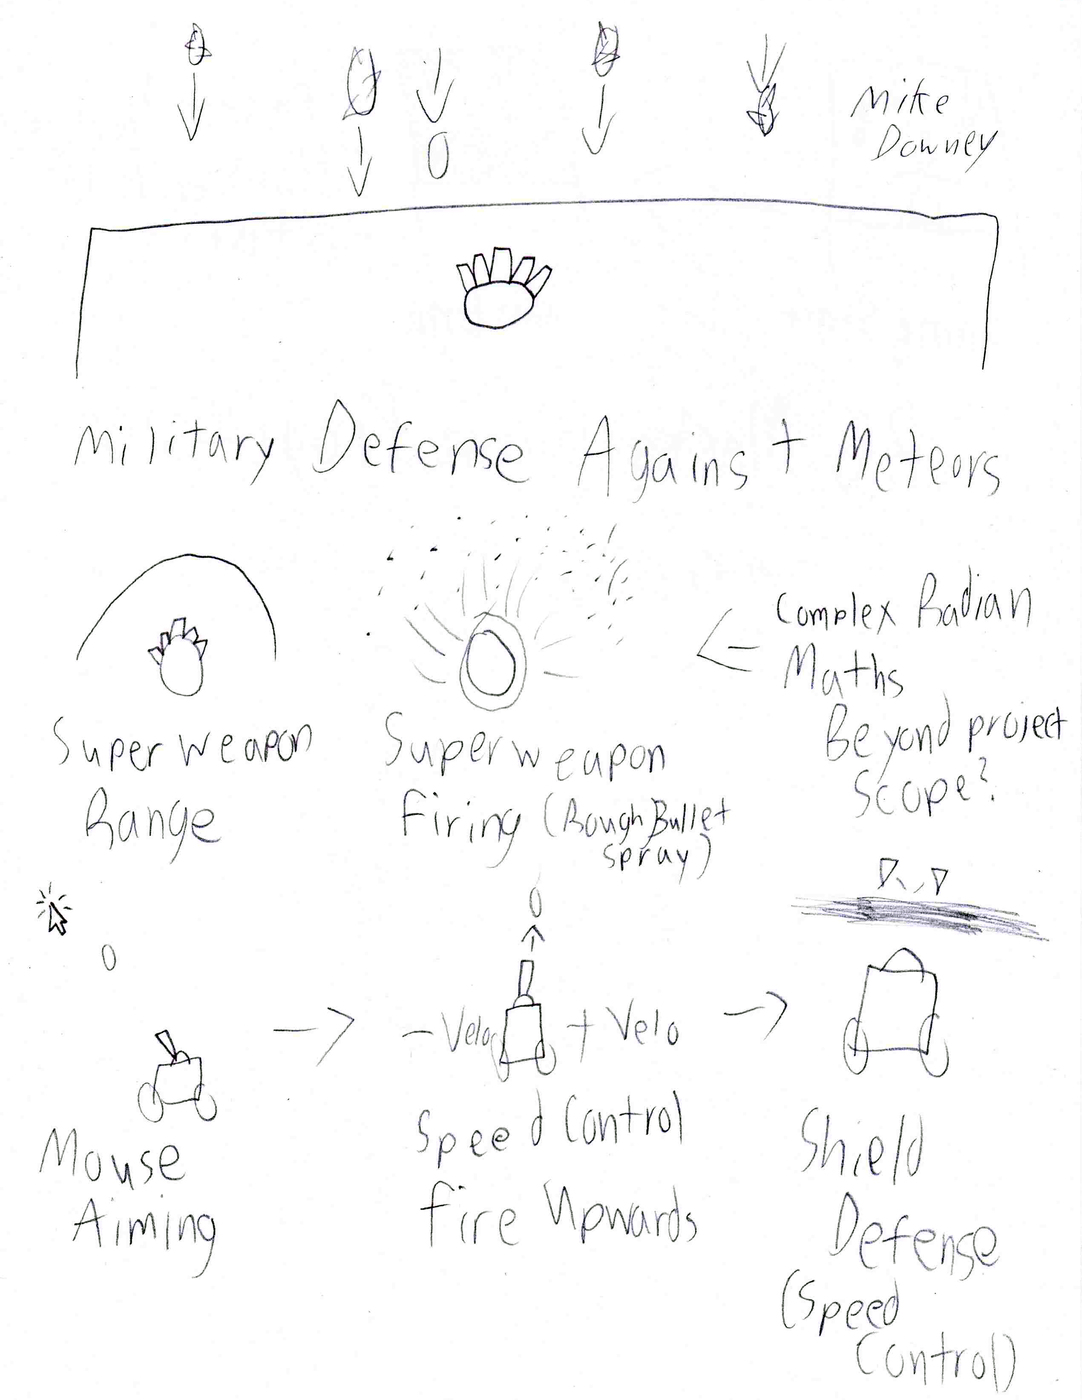 Mike
Downey
Military Defense Against Meteors
Super weapon
Range
Superweapon
Firing (Rough Bullet
spray)
Complex Radian
Maths
Beyond project
Scope?
Mouse
Aiming
- Velo
+ Velo
Speed Control
Fire Upwards
Shield
Defense
(Speed
Control)